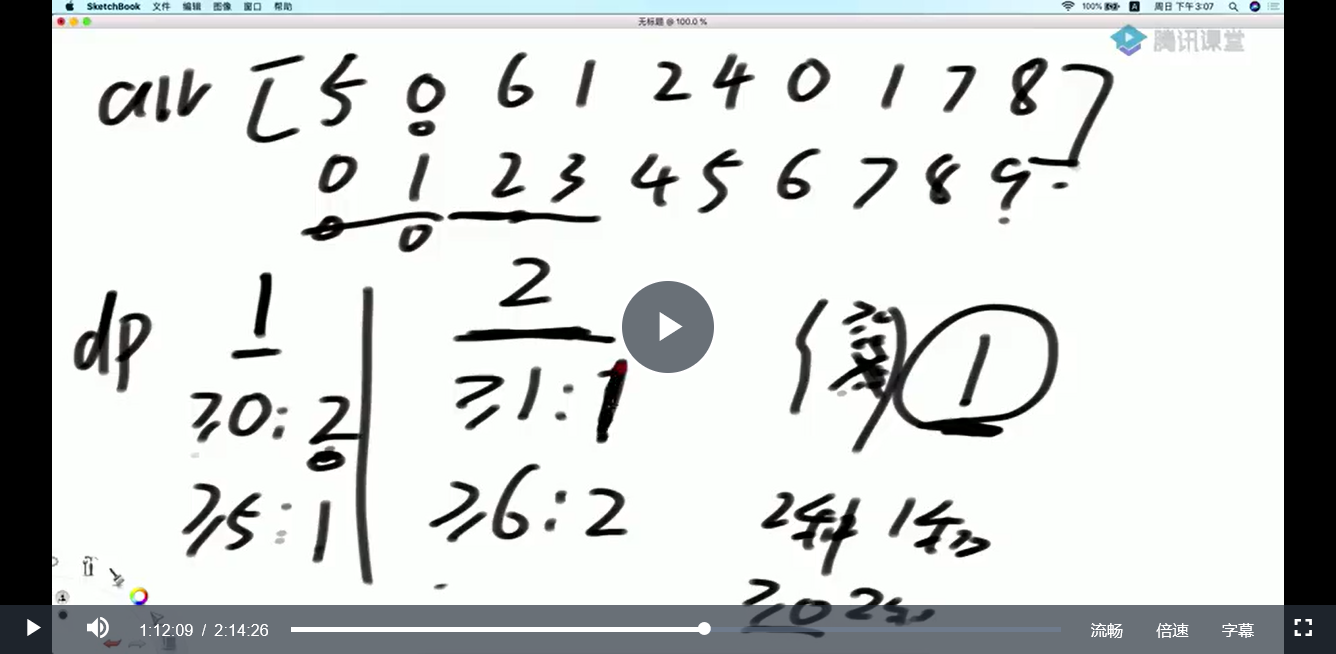 SketchBook 文件 编辑 图像 窗口 帮助 100% A 周日 下午3:07
无标题 @ 100.0 %
腾讯课堂
arr [5 0 6 1 2 4 0 1 7 8]
0 1 2 3 4 5 6 7 8 9
0 0
dp 1 2
≥0:2 ≥1:1 1
≥5:1 ≥6:2
≥0
1:12:09 / 2:14:26 流畅 倍速 字幕